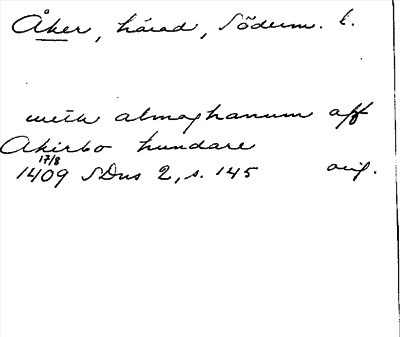 Åker, härad, Söderm. l.
meth almoghanum aff
Akirbo hundare
17/8
1409 SDns 2, s. 145 orig.